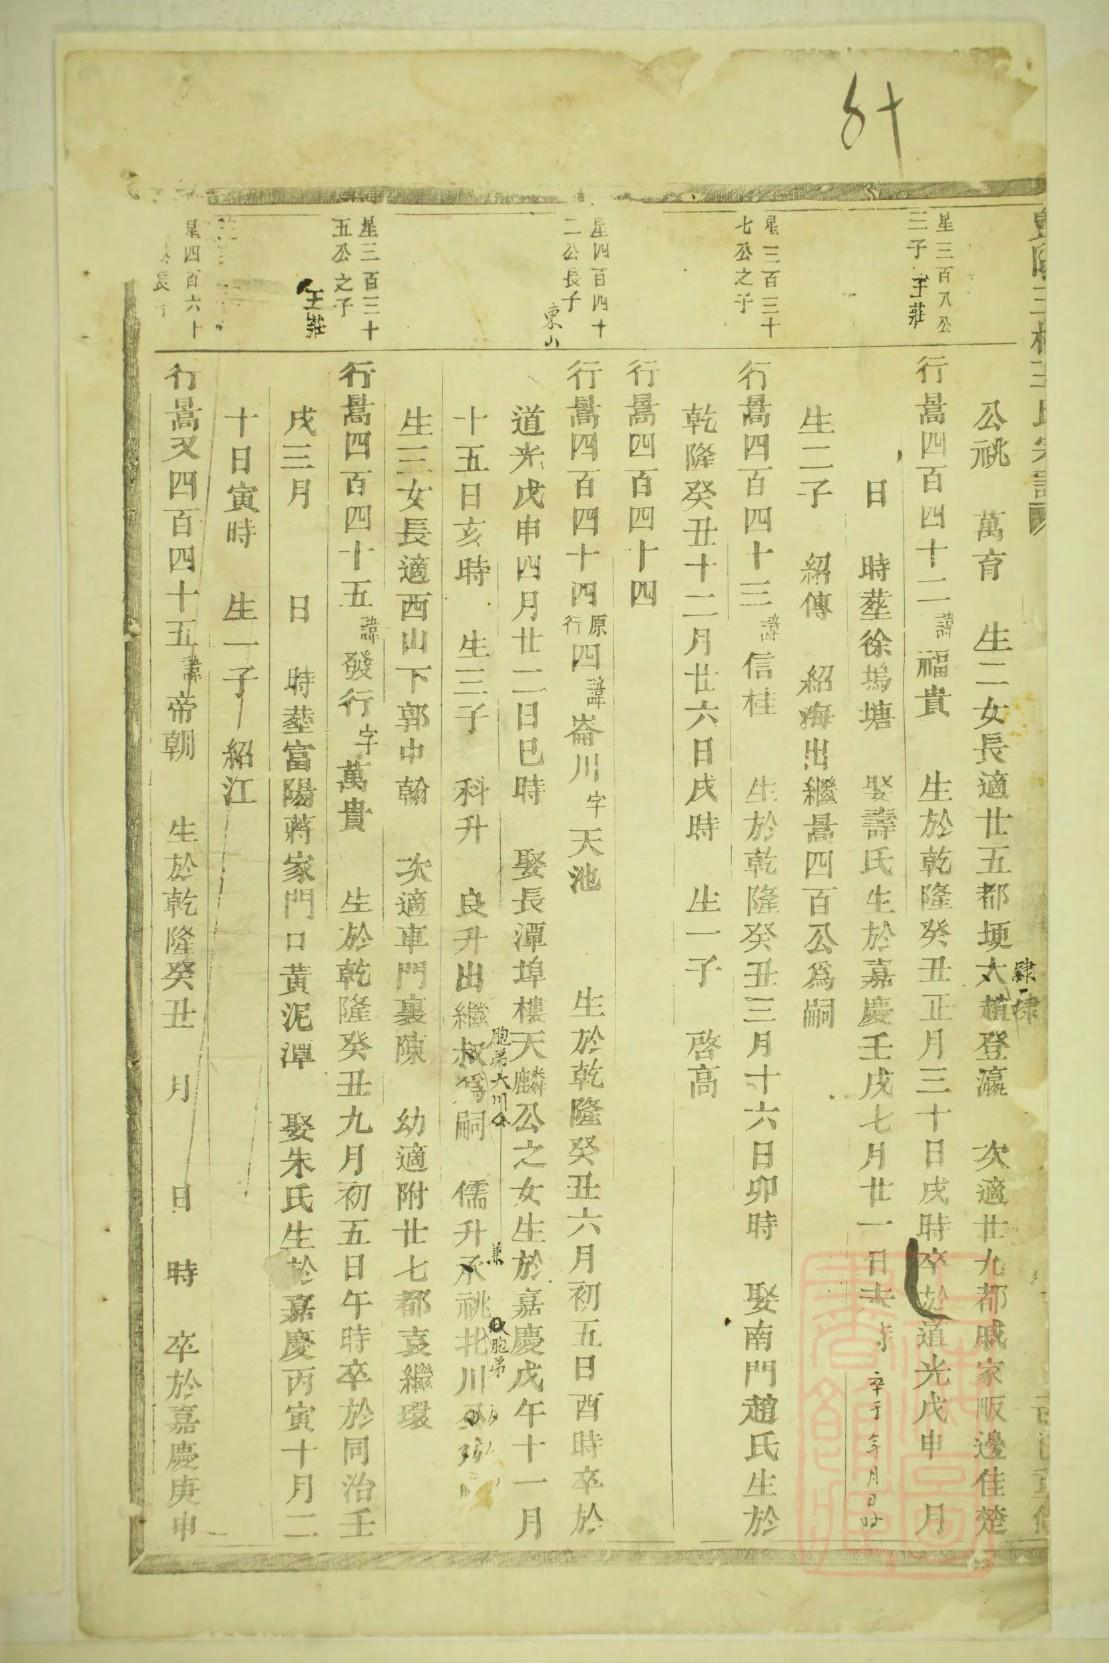 公祧　萬育　生二女長適廿五都埂大趙登瀛　次適廿九都戚家畈邊佳楚
星三百八公
三子 王莊
行暠四百四十二諱福貴　生於乾隆癸丑正月三十日戌時卒於道光戊申　月
日　時塟徐塢塘　娶壽氏生於嘉慶壬戌七月廿一日 卒于 年 月 日 时
生二子　紹傳　紹海出繼暠四百公爲嗣
星三百三十
七公之子
行暠四百四十三諱信桂　生於乾隆癸丑三月十六日卯時　娶南門趙氏生於
乾隆癸丑十二月廿六日戌時　生一子　啓高
行暠四百四十四
星四百四十
二公長子
東山
行暠四百四十四原行四諱崙川字天池　生於乾隆癸丑六月初五日酉時卒於
道光戊申四月廿二日巳時　娶長潭埠樓天麟公之女生於嘉慶戊午十一月
胞弟大川公
十五日亥時　生三子　科升　良升出繼叔爲嗣　儒升承祧北川
兼
胞弟
生三女長適西山下郭中翰　次適車門裏陳　幼適附廿七都袁繼環
星三百三十
五公之子
王莊
行暠四百四十五諱發行字萬貴　生於乾隆癸丑九月初五日午時卒於同治壬
戌三月　日　時塟富陽蔣家門口黃泥潭　娶朱氏生於嘉慶丙寅十月二
十日寅時　生一子　紹江
星四百六十
公長子
行暠又四百四十五諱帝朝　生於乾隆癸丑　月　日　時　卒於嘉慶庚申